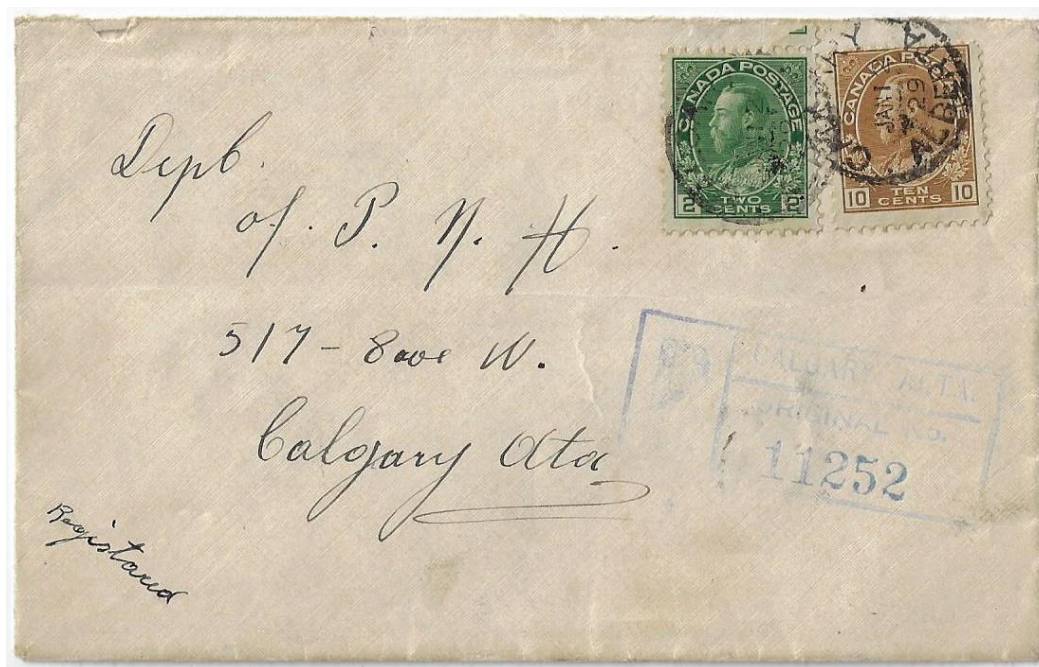 CANADA POSTAGE
2 TWO CENTS 2
CANADA POSTAGE
10 TEN CENTS 10
CALGARY ALBERTA
JAN 1
29
Dept.
of. P. N. H.
517 - 8 ave W.
Calgary Alta
Registared
R
CALGARY, ALTA.
ORIGINAL NO.
11252